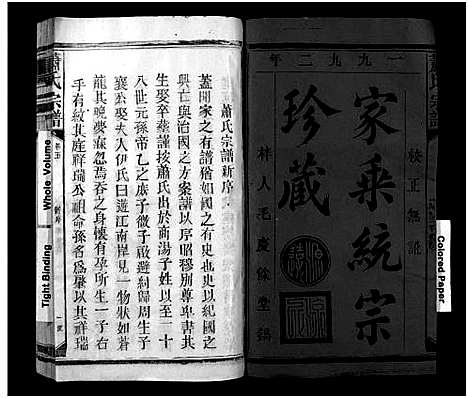 一九九二年
校正無訛
家乘統宗
珍藏
梓人毛慶餘堂鐫
Colored Paper
蕭氏宗譜新序
蓋聞家之有譜猶如國之有史也史以紀國之
興亡與治國之方案譜以序昭穆別尊卑書其
生娶卒葬謹按蕭氏出於商湯子姓至三十
八世元孫帝乙之庶子微子啟避紂歸周生子
襄公娶夫人伊氏曰遊江南岸見一物狀如蒼
龍其晚夢寐忽焉吞之身懷有孕所生一子右
手有紋其庭祥瑞公祖命孫名為肇以其祥瑞
蕭氏宗譜
卷五
新序
一號
Whole Volume
Tight Binding